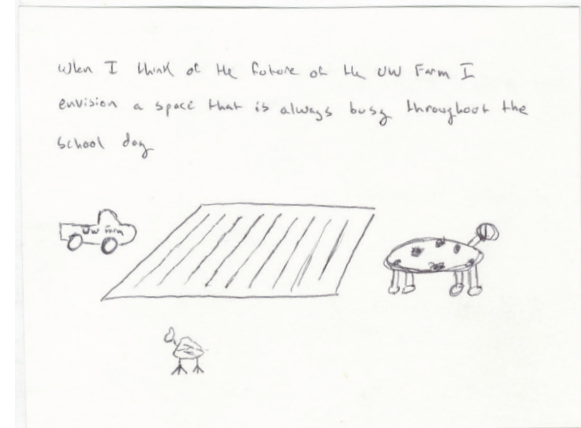 When I think of the future of the UW Farm I
envision a space that is always busy throughout the
school day
UW Farm